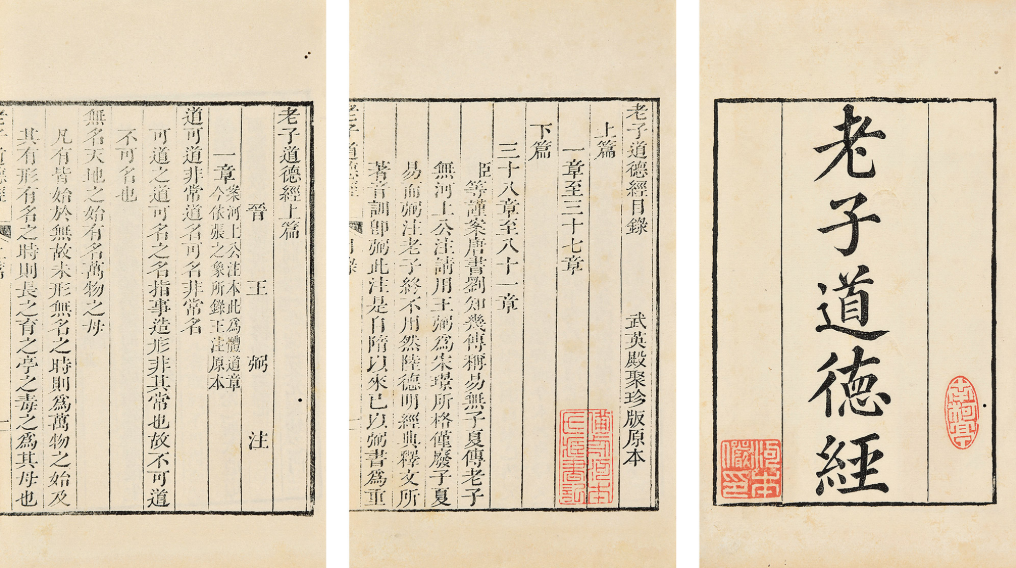 老子道德經
老子道德經目錄 武英殿聚珍版原本
上篇
一章至三十七章
下篇
三十八章至八十一章
臣等謹案唐書劉知幾傳稱易無子夏傳老子
無河上公注請用王弼爲宋璟所格僅廢子夏
易而弼注老子終不用然陸德明經典釋文所
著音訓卽弼此注是自隋以來已以弼書爲重
老子道德經上篇
晉 王 弼 注
一章 案河上公注本此爲體道章
今依張之象所錄王注原本
道可道非常道名可名非常名
可道之道可名之名指事造形非其常也故不可道
不可名也
無名天地之始有名萬物之母
凡有皆始於無故未形無名之時則爲萬物之始及
其有形有名之時則長之育之亭之毒之爲其母也